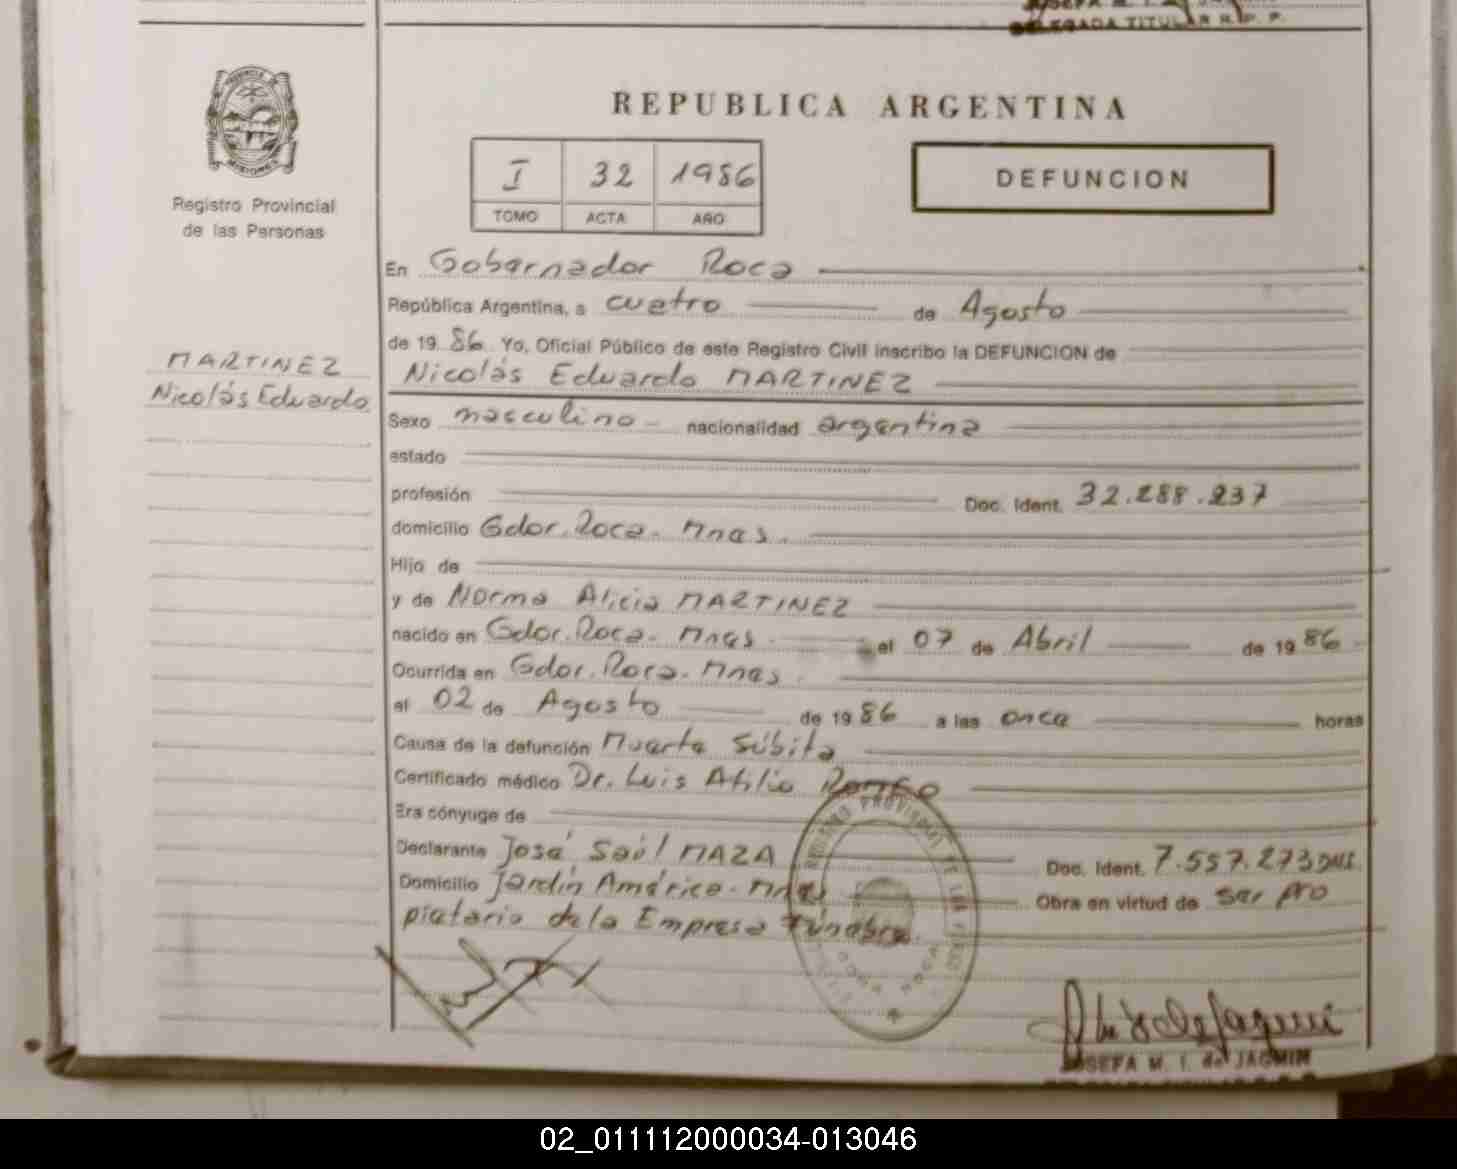 DELEGADA TITULAR R. P. P.
REPUBLICA ARGENTINA
I 32 1986
TOMO ACTA AÑO
DEFUNCION
Registro Provincial
de las Personas
MARTINEZ
Nicolás Eduardo
En Gobernador Roca
República Argentina, a cuatro de Agosto
de 19 86 Yo, Oficial Público de este Registro Civil inscribo la DEFUNCION de
Nicolás Eduardo MARTINEZ
Sexo masculino nacionalidad argentina
estado
profesión Doc. Ident. 32.288.237
domicilio Gdor. Roca - Mnes.
Hijo de
y de Norma Alicia MARTINEZ
nacido en Gdor. Roca - Mnes. el 07 de Abril de 19 86
Ocurrida en Gdor. Roca - Mnes.
el 02 de Agosto de 19 86 a las once horas
Causa de la defunción Muerte Súbita
Certificado médico Dr. Luis Atilio
Era cónyuge de
Declarante José Saúl MAZA Doc. Ident. 7.557.273 DNI.
Domicilio Jardín América - Mnes Obra en virtud de ser pro
pietario de la Empresa Fúnebre.
JOSEFA M. I. de JAQMIN
02_011112000034-013046